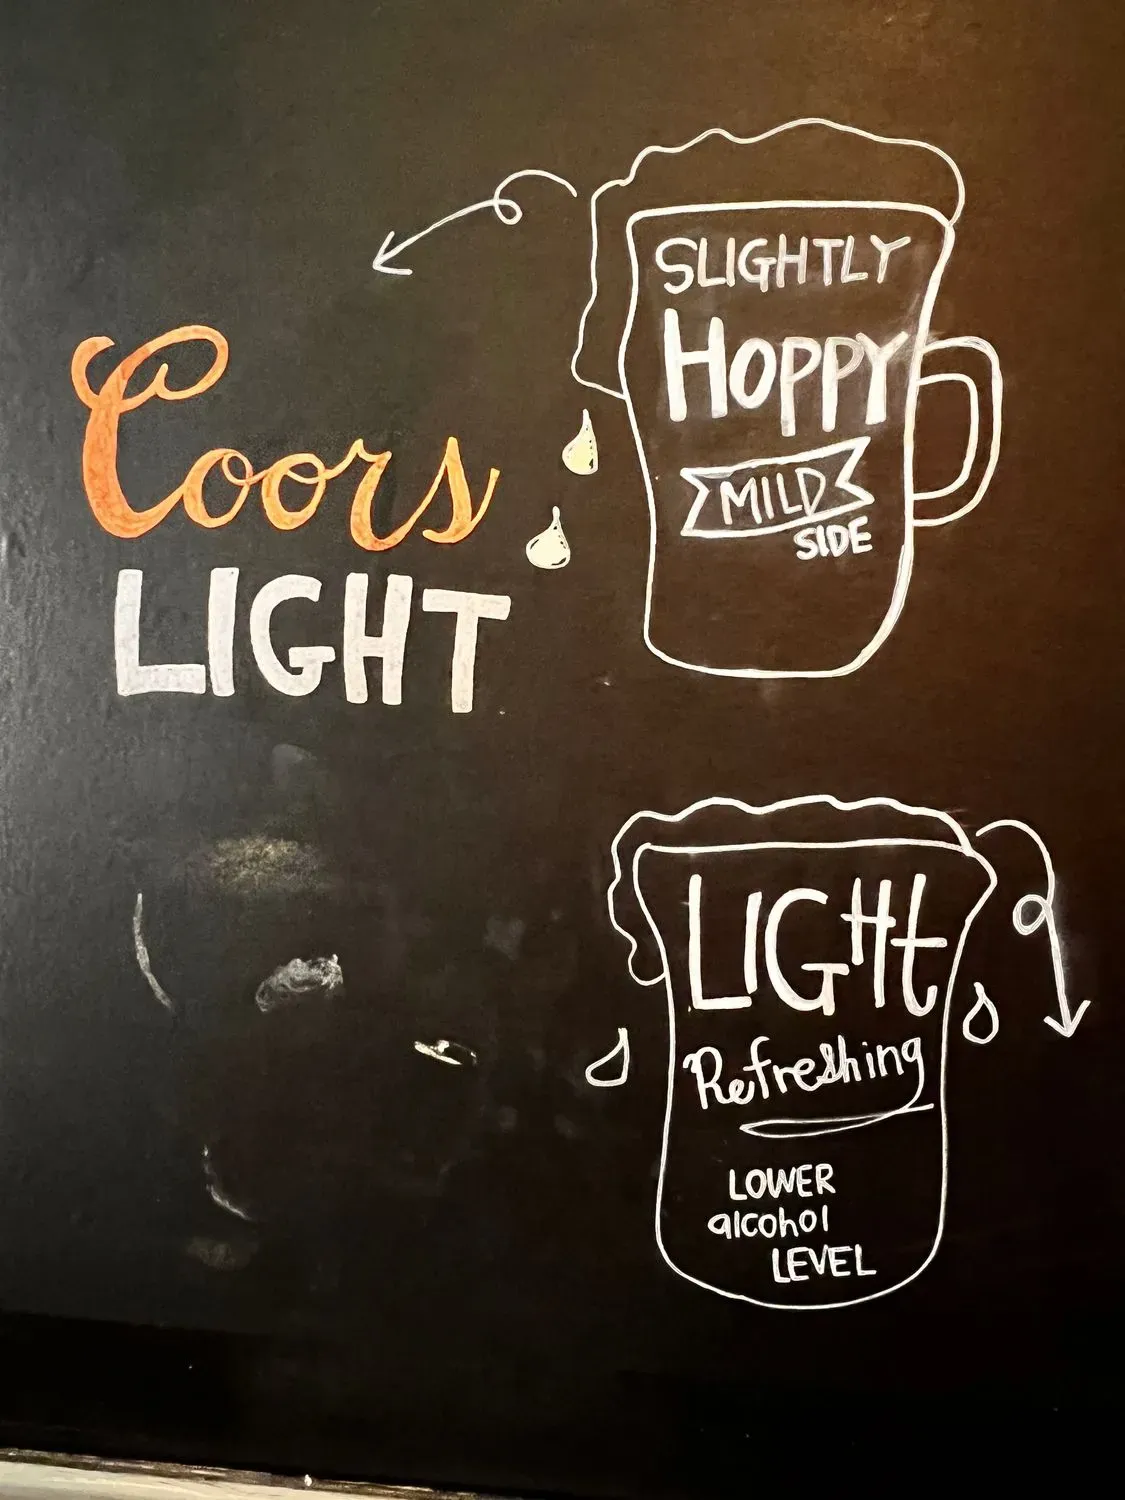 Coors
LIGHT
SLIGHTLY
HOPPY
MILD
SIDE
LIGHt
Refreshing
LOWER
alcohol
LEVEL